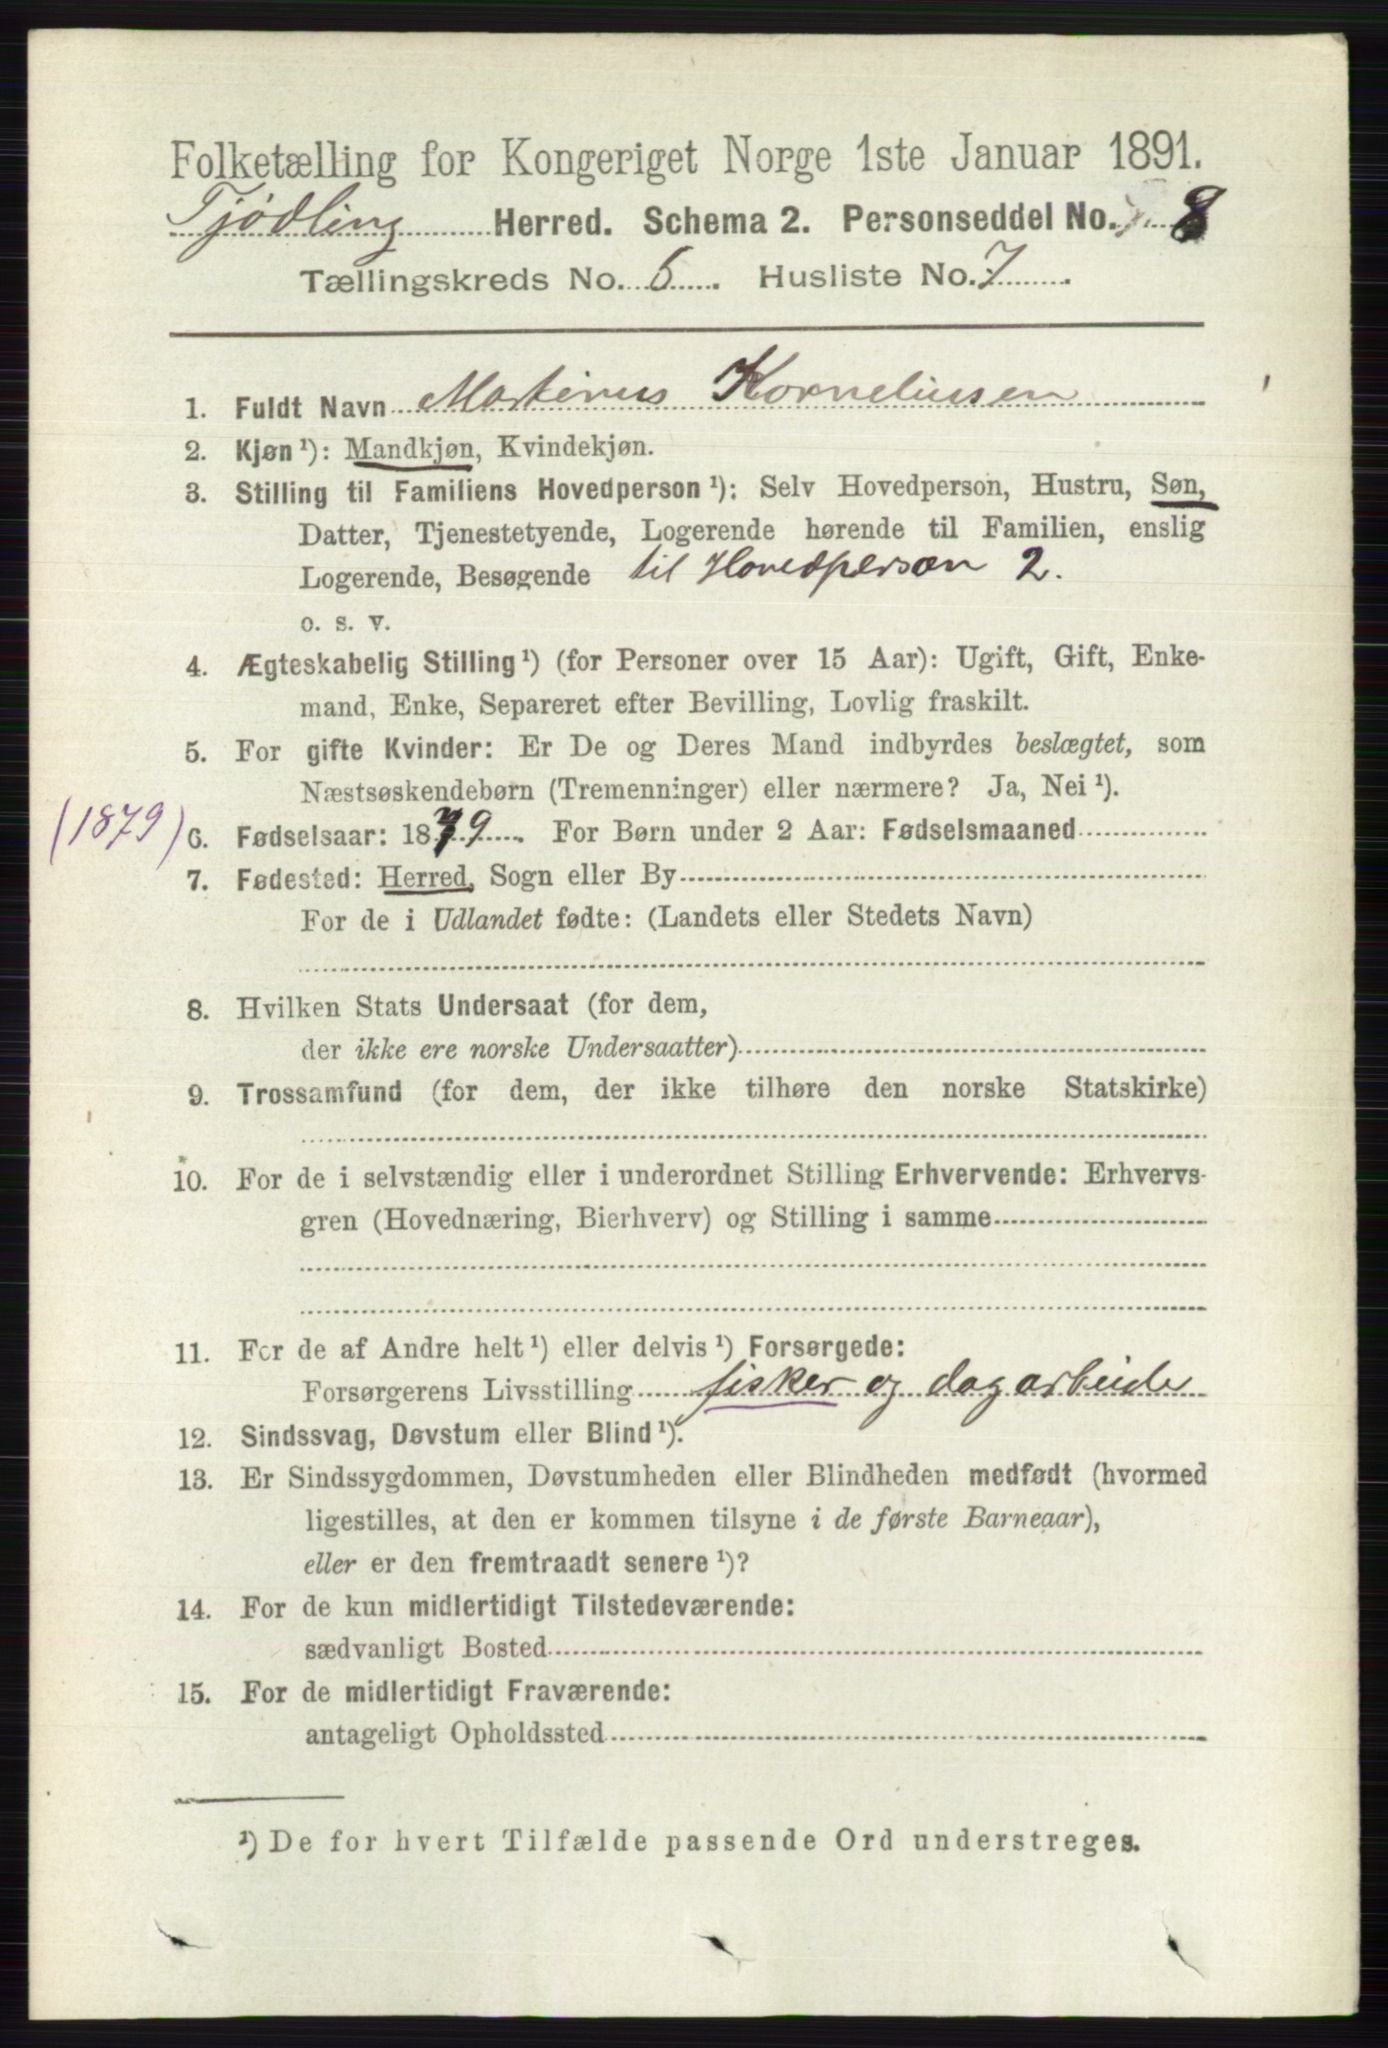 Folketælling for Kongeriget Norge 1ste Januar 1891.
Tjødling Herred. Schema 2. Personseddel No. 8
Tællingskreds No. 6. Husliste No. 7.
1. Fuldt Navn Martinus Korneliusen
2. Kjøn ¹): Mandkjøn, Kvindekjøn.
3. Stilling til Familiens Hovedperson ¹): Selv Hovedperson, Hustru, Søn,
Datter, Tjenestetyende, Logerende hørende til Familien, enslig
Logerende, Besøgende til Hovedperson 2.
o. s. v.
4. Ægteskabelig Stilling ¹) (for Personer over 15 Aar): Ugift, Gift, Enke-
mand, Enke, Separeret efter Bevilling, Lovlig fraskilt.
5. For gifte Kvinder: Er De og Deres Mand indbyrdes beslægtet, som
Næstsøskendebørn (Tremenninger) eller nærmere? Ja, Nei ¹).
(1879) 6. Fødselsaar: 1879. For Børn under 2 Aar: Fødselsmaaned
7. Fødested: Herred, Sogn eller By
For de i Udlandet fødte: (Landets eller Stedets Navn)
8. Hvilken Stats Undersaat (for dem,
der ikke ere norske Undersaatter)
9. Trossamfund (for dem, der ikke tilhøre den norske Statskirke)
10. For de i selvstændig eller i underordnet Stilling Erhvervende: Erhvervs-
gren (Hovednæring, Bierhverv) og Stilling i samme
11. For de af Andre helt ¹) eller delvis ¹) Forsørgede:
Forsørgerens Livsstilling fisker og dagarbeide
12. Sindssvag, Døvstum eller Blind ¹).
13. Er Sindssygdommen, Døvstumheden eller Blindheden medfødt (hvormed
ligestilles, at den er kommen tilsyne i de første Barneaar),
eller er den fremtraadt senere ¹)?
14. For de kun midlertidigt Tilstedeværende:
sædvanligt Bosted
15. For de midlertidigt Fraværende:
antageligt Opholdssted
¹) De for hvert Tilfælde passende Ord understreges.